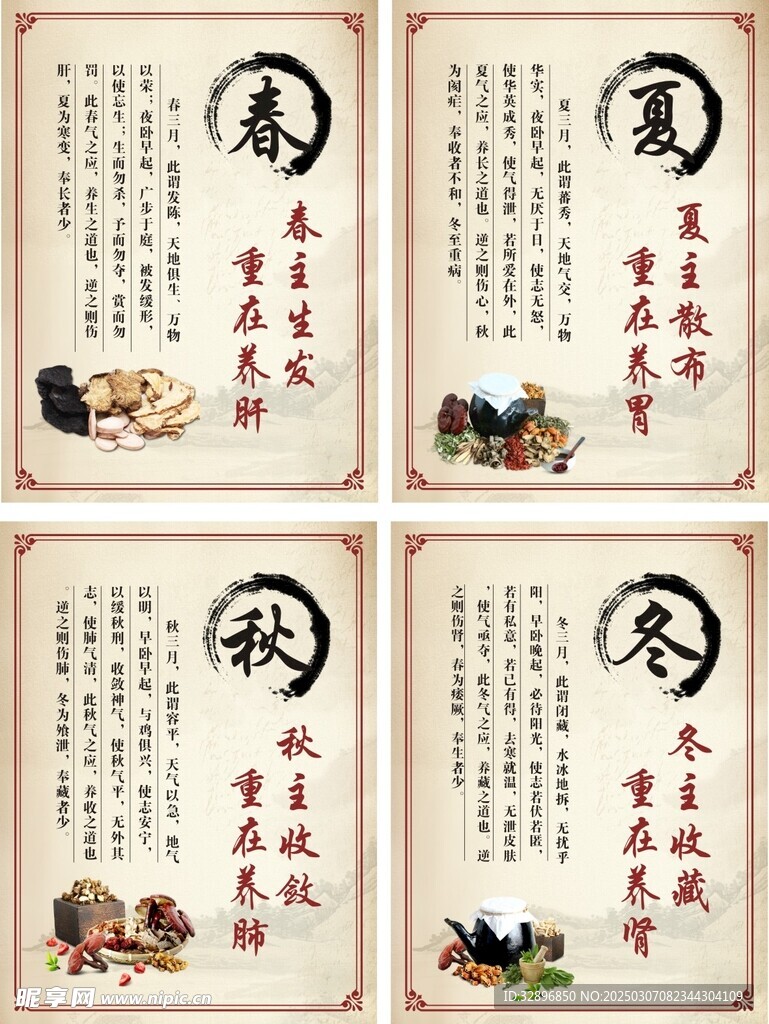 春
春主生发
重在养肝
春三月，此谓发陈，天地俱生、万物
以荣；夜卧早起，广步于庭，被发缓形，
以使忘生；生而勿杀，予而勿夺，赏而勿
罚。此春气之应，养生之道也，逆之则伤
肝，夏为寒变，奉长者少。
夏
夏主散布
重在养胃
夏三月，此谓蕃秀，天地气交，万物
华实，夜卧早起，无厌于日，使志无怒，
使华英成秀，使气得泄，若所爱在外，此
夏气之应，养长之道也。逆之则伤心，秋
为阂疟，奉收者不和，冬至重病。
秋
秋主收敛
重在养肺
秋三月，此谓容平，天气以急，地气
以明，早卧早起，与鸡俱兴，使志安宁，
以缓秋刑，收敛神气，使秋气平，无外其
志，使肺气清，此秋气之应，养收之道也
。逆之则伤肺，冬为飧泄，奉藏者少。
冬
冬主收藏
重在养肾
冬三月，此谓闭藏，水冰地拆，无扰乎
阳，早卧晚起，必待阳光，使志若伏若匿，
若有私意，若已有得，去寒就温，无泄皮肤
，使气亟夺，此冬气之应，养藏之道也。逆
之则伤肾，春为痿厥，奉生者少。
昵享网 www.nipic.cn
ID:32896850 NO:20250307082344304109